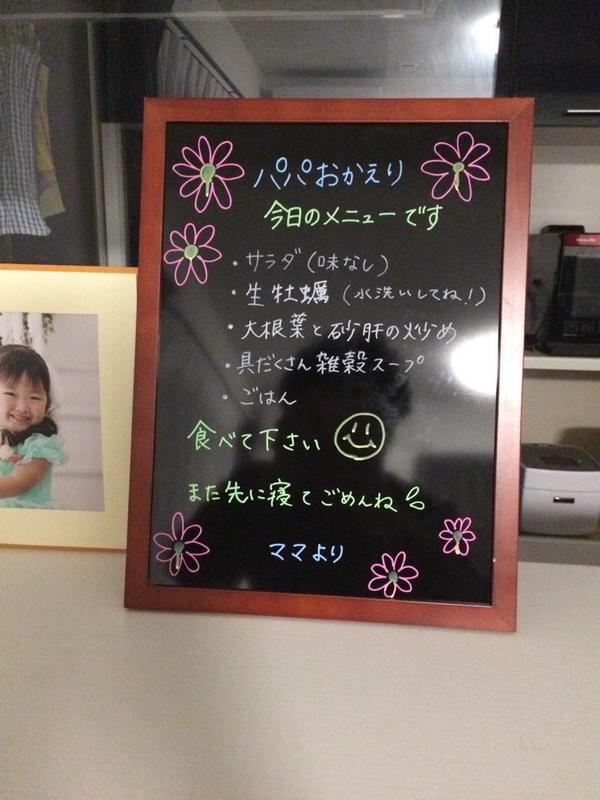 パパおかえり
今日のメニューです
・サラダ(味なし)
・生牡蠣(水洗いしてね!)
・大根葉と砂肝の炒め
・具だくさん雑穀スープ
・ごはん
食べて下さい
また先に寝てごめんね
ママより